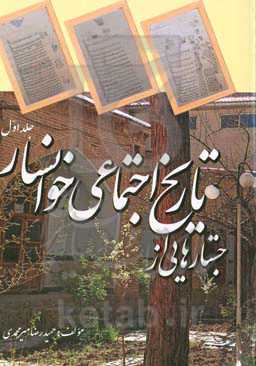 جلد اول
جستارهایی از
تاریخ اجتماعی خوانسار
مؤلف: حمیدرضا میرمحمدی
ketab.ir